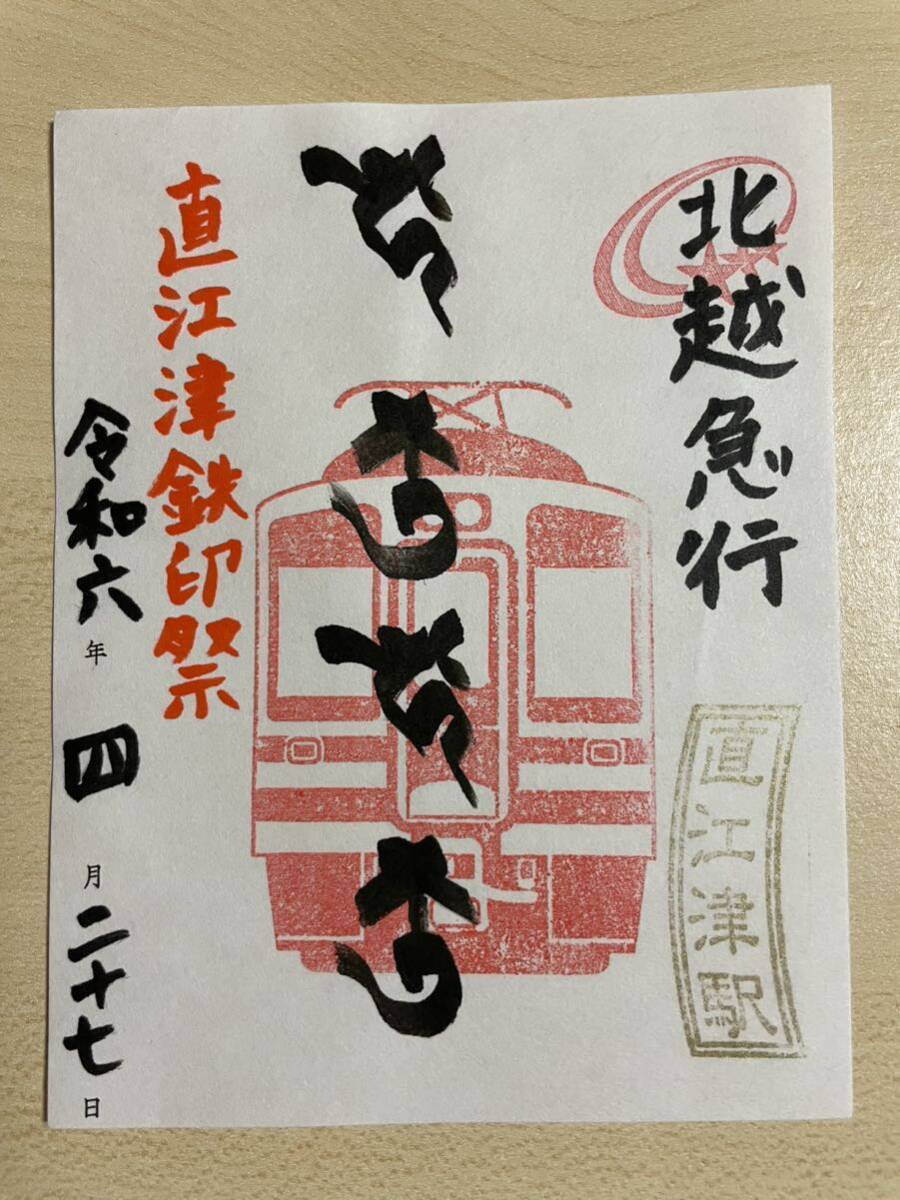 北越急行
直江津駅
直江津鉄印祭
令和六年四月二十七日